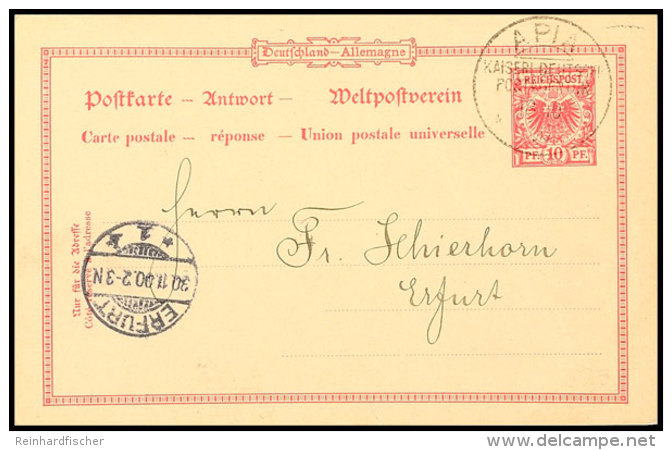 Deutschland–Allemagne
APIA
KAISERL. DEUTSCHE
REICHSPOST
Postkarte — Antwort — Weltpostverein
Carte postale — réponse — Union postale universelle
PF. 10 PF.
Herrn
Fr. Schierhorn
Erfurt
Nur für die Adresse
Côté réservé à l'adresse
* 1 *
30.11.00.2-3N
ERFURT
Reinhardfischer
delcampe.net